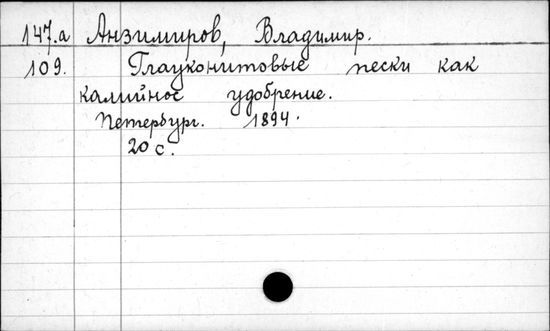 147.a Анзимиров, Владимир.
109. Глауконитовые пески как
калийное удобрение.
Петербург. 1894.
20 с.